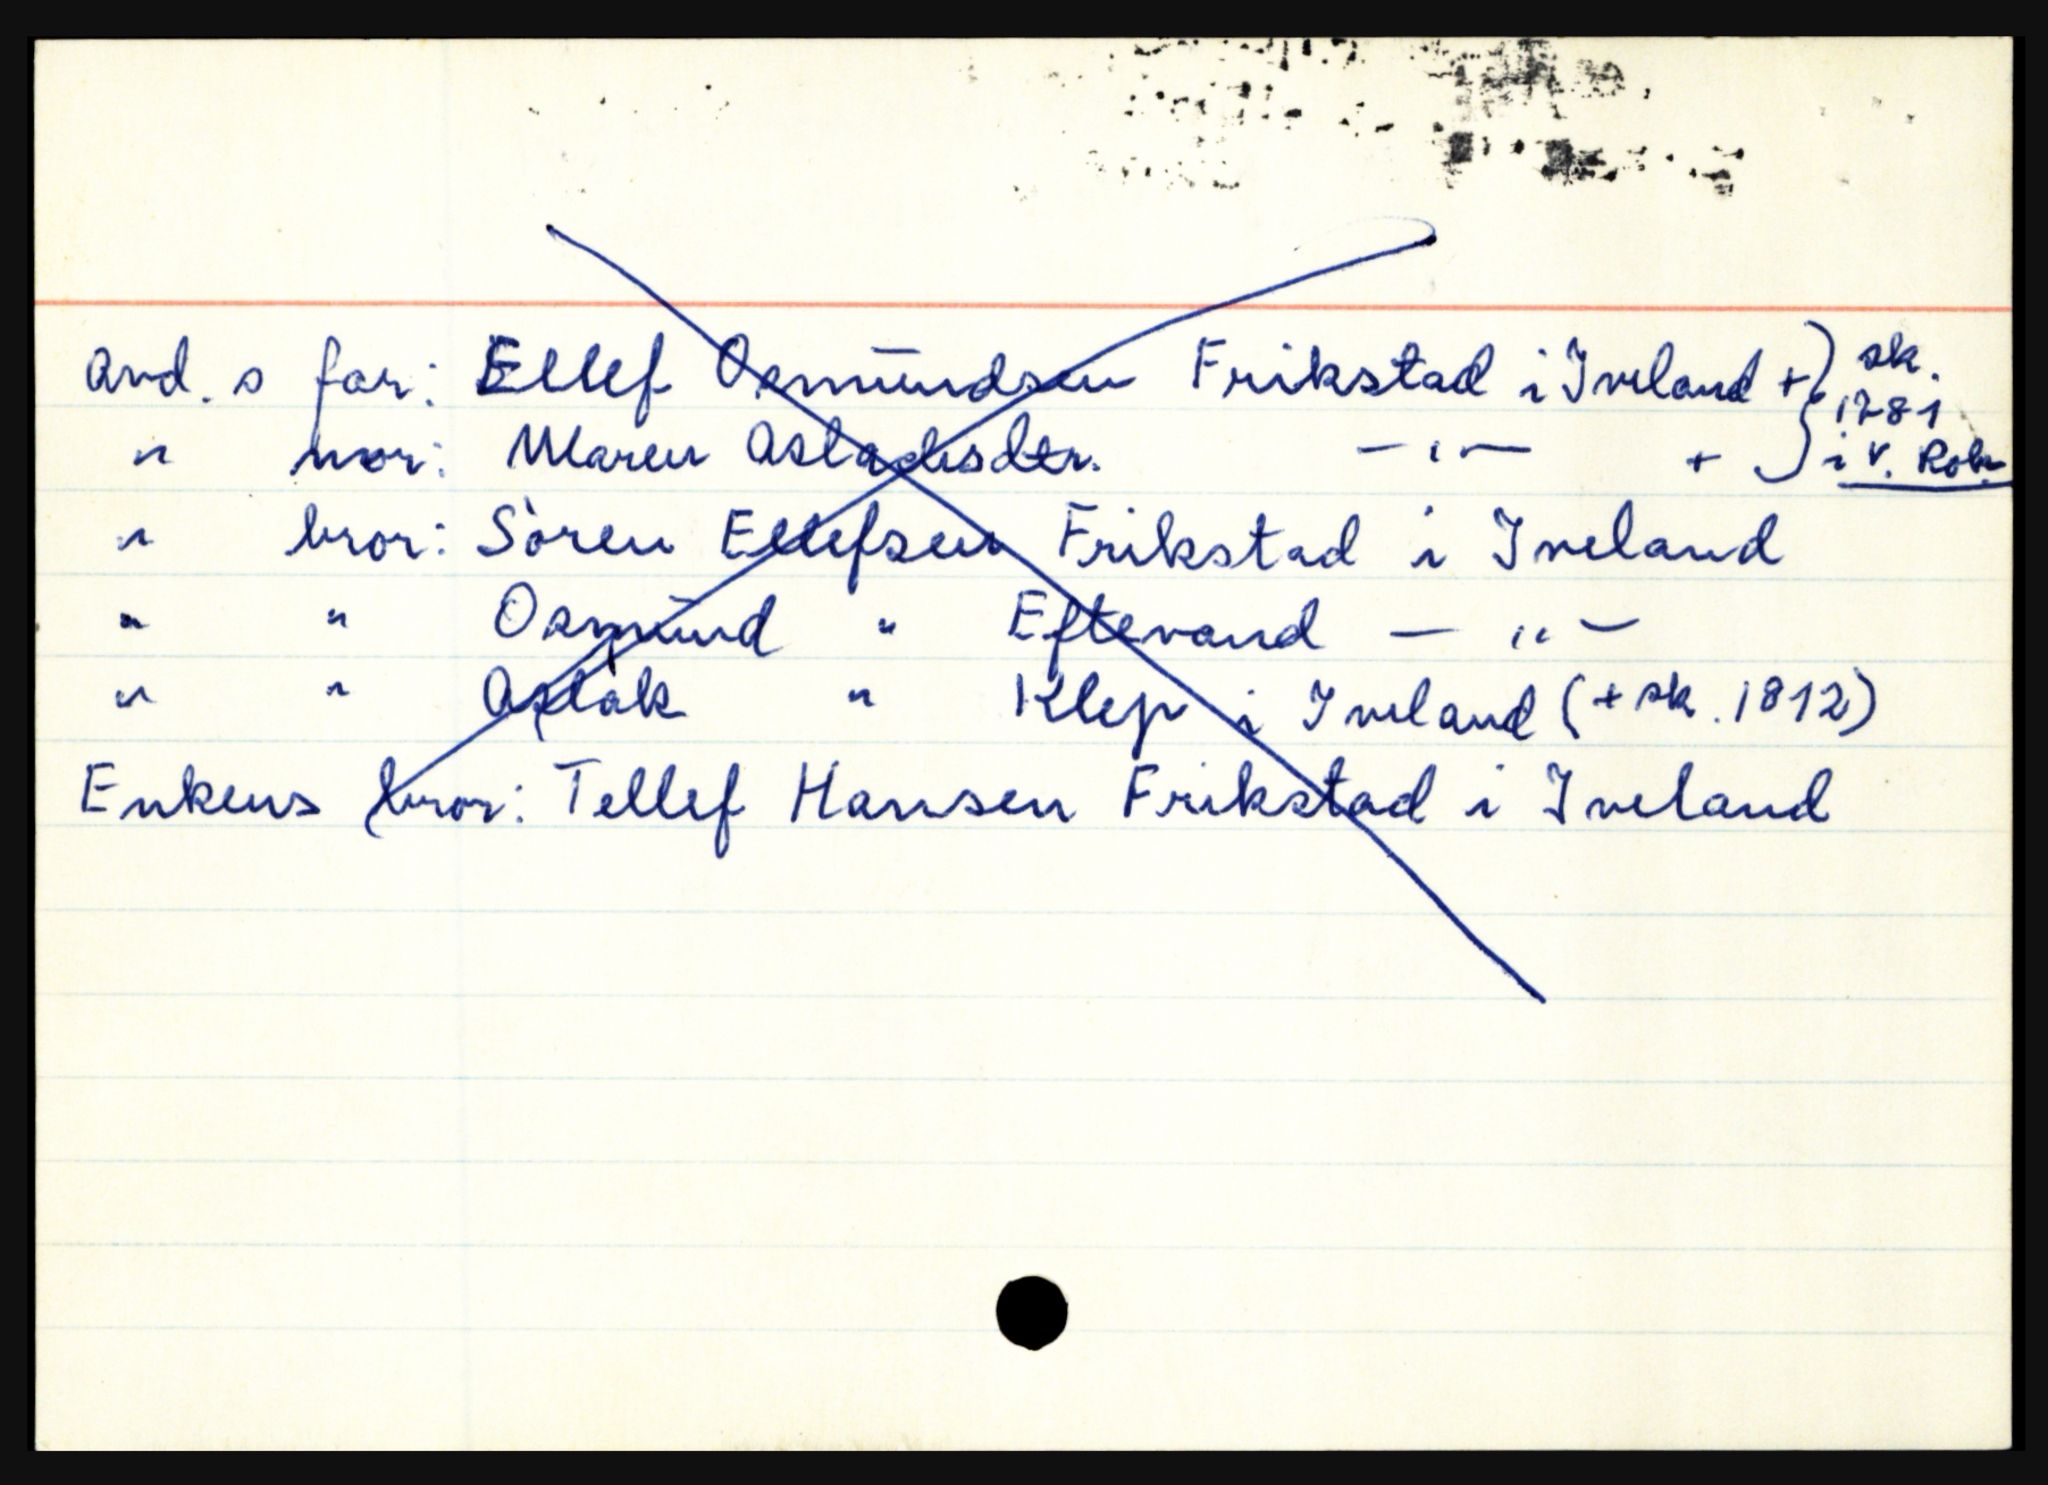 avd. s far: Ellef Osmundsen Frikstad i Iveland + } sk. 1781
" mor: Maren Aslaksdtr. — " — + } i V. Rob.
" bror: Sören Ellefsen Frikstad i Iveland
" " Osmund " Eftevand — " —
" " Aslak " Klep i Iveland (+ sk. 1812)
Enkens bror: Tellef Hansen Frikstad i Iveland